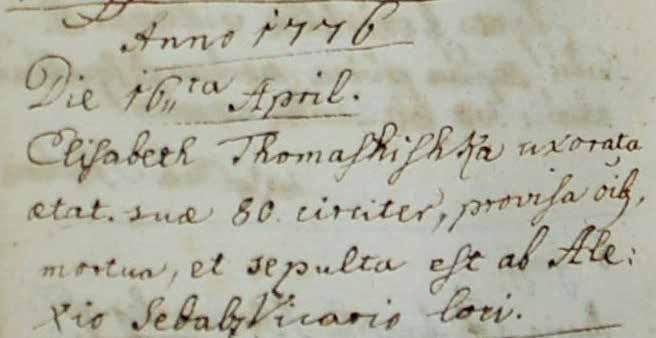 Anno 1776
Die 16„ta April.
Elisabeth Thomashishka uxorata
ætat. suæ 80. circiter, provisa oĩbꝫ,
mortua, et sepulta est ab Ale:
xio Vicario loci.